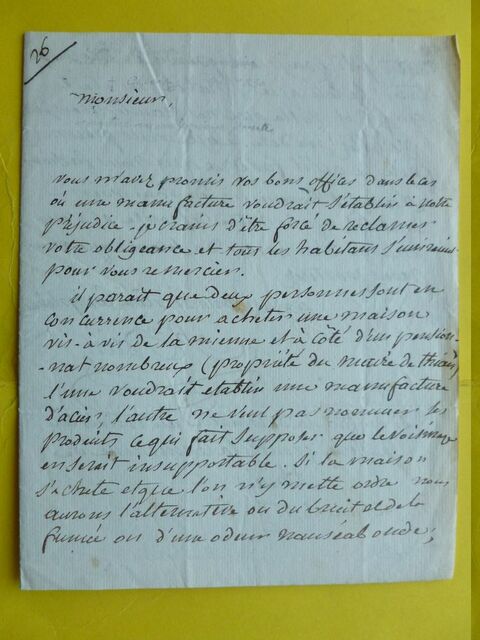 26
Monsieur,
vous m'avez promis vos bons offices dans le cas
où une manufacture voudrait s'établir à notre
préjudice. je crains d'être forcé de reclamer
votre obligeance et tous les habitans s'uniraient
pour vous remercier.
il parait que deux personnes sont en
concurrence pour acheter une maison
vis-à-vis de la mienne et à côté d'un pension-
-nat nombreux (propriété du maire de thiais)
l'une voudrait etablir une manufacture
d'acier, l'autre ne veut pas nommer les
produits ce qui fait supposer que le voisinage
en serait insupportable. Si la maison
s'achete et que l'on n'y mette ordre nous
aurons l'alternative ou du bruit et de la
fumée ou d'une odeur nauséabonde;